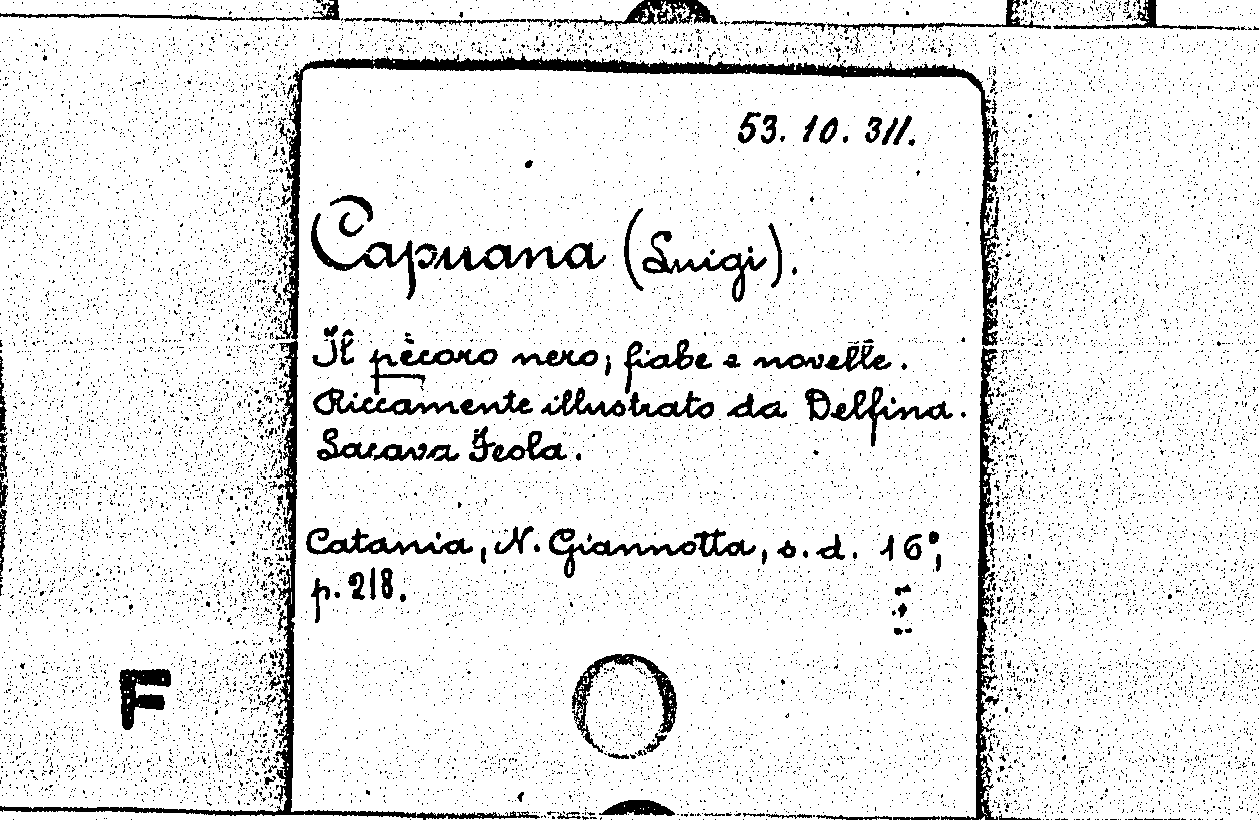 53. 10. 311.
Capuana (Luigi).
Il pècoro nero; fiabe e novelle.
Riccamente illustrato da Delfina.
Sacava Feola.
Catania, N. Giannotta, s. d. 16°,
p. 218.
F